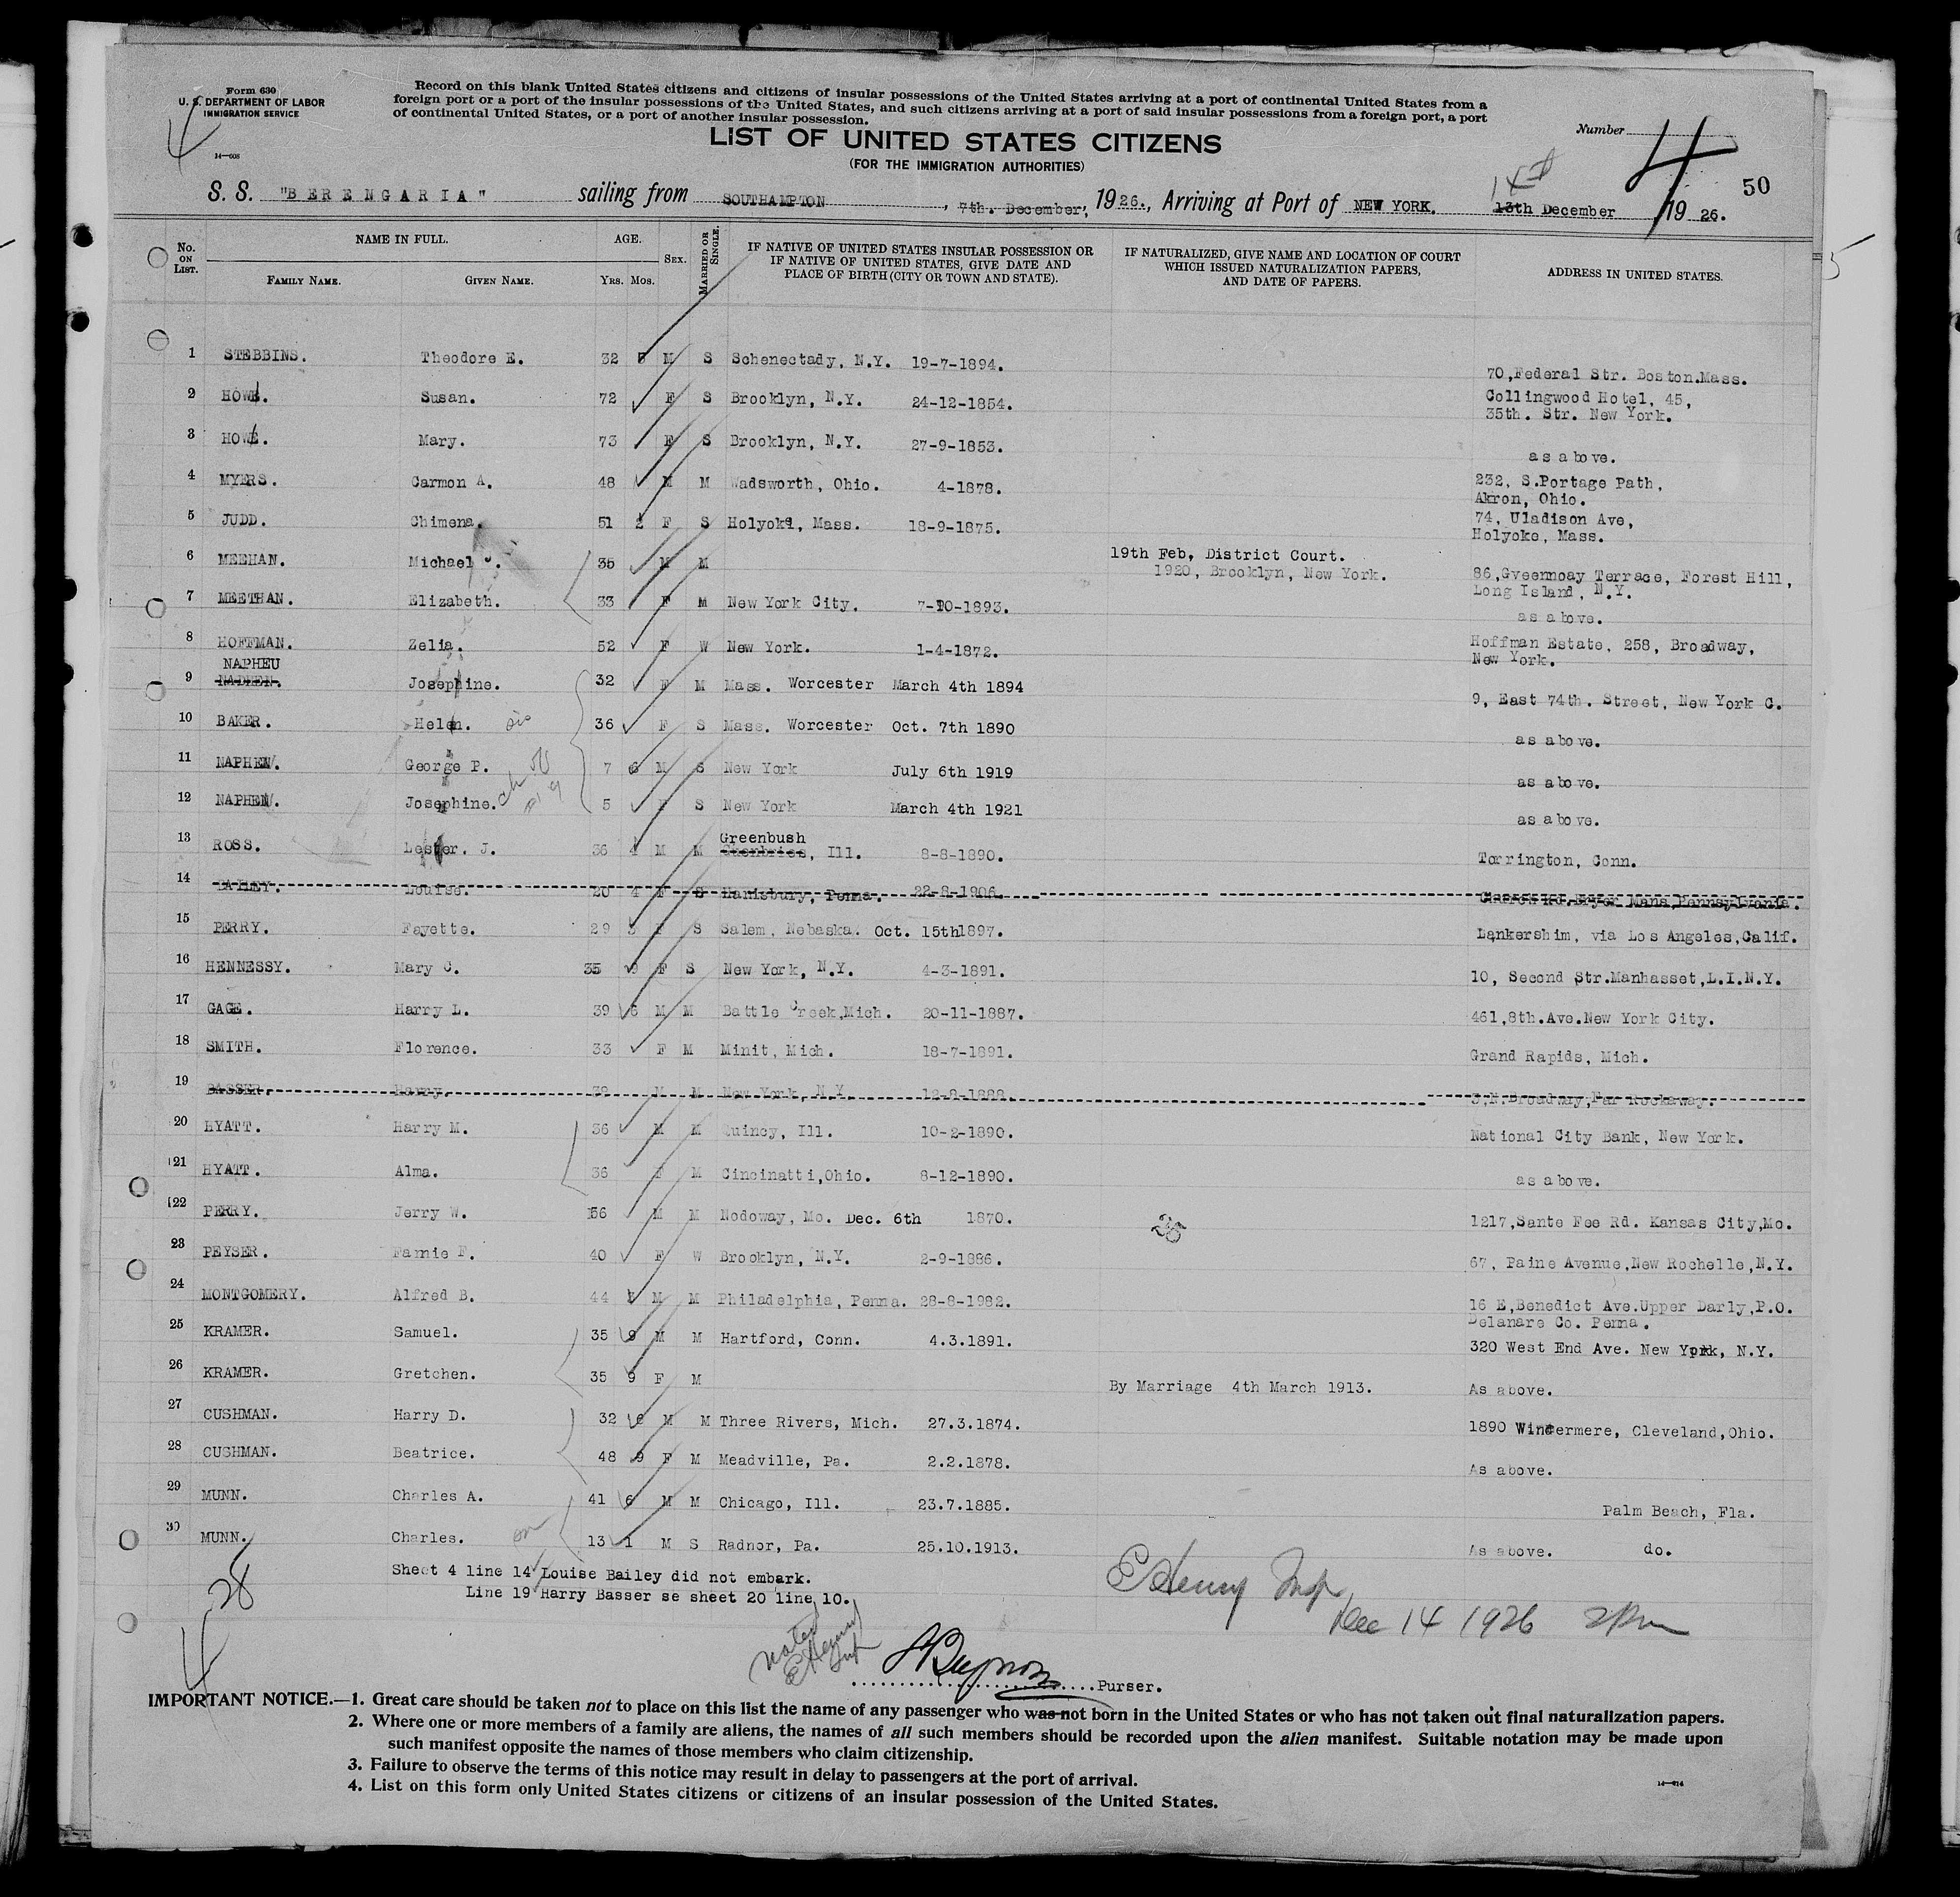 Form 630
U. S. DEPARTMENT OF LABOR
IMMIGRATION SERVICE
14—608
Record on this blank United States citizens and citizens of insular possessions of the United States arriving at a port of continental United States from a
foreign port or a port of the insular possessions of the United States, and such citizens arriving at a port of said insular possessions from a foreign port, a port
of continental United States, or a port of another insular possession.
LIST OF UNITED STATES CITIZENS
(FOR THE IMMIGRATION AUTHORITIES)
Number 4
50
S. S. "BERENGARIA" sailing from SOUTHAMPTON, 7th. December, 1926., Arriving at Port of NEW YORK. 13th December 1926.
14th
No. ON LIST. NAME IN FULL. FAMILY NAME. GIVEN NAME. AGE. Yrs. Mos. SEX. MARRIED OR SINGLE. IF NATIVE OF UNITED STATES INSULAR POSSESSION OR IF NATIVE OF UNITED STATES, GIVE DATE AND PLACE OF BIRTH (CITY OR TOWN AND STATE). IF NATURALIZED, GIVE NAME AND LOCATION OF COURT WHICH ISSUED NATURALIZATION PAPERS, AND DATE OF PAPERS. ADDRESS IN UNITED STATES.
1 STEBBINS. Theodore E. 32 5 M S Schenectady, N.Y. 19-7-1894. 70,Federal Str. Boston.Mass.
2 HOWE. Susan. 72 F S Brooklyn, N.Y. 24-12-1854. Collingwood Hotel, 45,
35th. Str. New York.
3 HOWE. Mary. 73 F S Brooklyn, N.Y. 27-9-1853. as above.
4 MYERS. Carmon A. 48 M M Wadsworth, Ohio. 4-1878. 232, S.Portage Path,
Akron, Ohio.
5 JUDD. Chimena. 51 2 F S Holyoke, Mass. 18-9-1875. 74, Uladison Ave,
Holyoke, Mass.
6 MEEHAN. Michael J. 35 M M 19th Feb, District Court.
1920, Brooklyn, New York. 86,Gveenmoay Terrace, Forest Hill,
Long Island, N.Y.
7 MEETHAN. Elizabeth. 33 F M New York City. 7-10-1893. as above.
8 HOFFMAN. Zelia. 52 F W New York. 1-4-1872. Hoffman Estate, 258, Broadway,
New York.
NAPHEU
9 NADHEN. Josephine. 32 F M Mass. Worcester March 4th 1894 9, East 74th. Street, New York C.
10 BAKER. Helen. sis 36 F S Mass. Worcester Oct. 7th 1890 as above.
11 NAPHEN. George P. 7 6 M S New York July 6th 1919 as above.
12 NAPHEN. Josephine. ch 5 F S New York March 4th 1921 as above.
Greenbush
13 ROSS. Lester. J. 36 4 M M , Ill. 8-8-1890. Torrington, Conn.
14 BAILEY. Louise. 20 4 F S Hanisbury, Penna. 22-8-1906. Church Rd.Bryer Mana,Pennsylvania.
15 PERRY. Fayette. 29 F S Salem, Nebaska. Oct. 15th1897. Lankershim, via Los Angeles,Calif.
16 HENNESSY. Mary C. 35 9 F S New York, N.Y. 4-3-1891. 10, Second Str.Manhasset,L.I.N.Y.
17 GAGE. Harry L. 39 6 M M Battle Creek,Mich. 20-11-1887. 461,8th.Ave.New York City.
18 SMITH. Florence. 33 F M Minit, Mich. 18-7-1891. Grand Rapids, Mich.
19 BASSER. Harry. 38 M M New York, N.Y. 12-8-1888. 3,N.Broadway,Far Rockaway.
20 HYATT. Harry M. 36 M M Quincy, Ill. 10-2-1890. National City Bank, New York.
21 HYATT. Alma. 36 F M Cincinatti,Ohio. 8-12-1890. as above.
22 PERRY. Jerry W. 56 M M Nodoway, Mo. Dec. 6th 1870. 1217,Sante Fee Rd. Kansas City,Mo.
28
23 PEYSER. Famie F. 40 F W Brooklyn, N.Y. 2-9-1886. 67, Paine Avenue,New Rochelle,N.Y.
24 MONTGOMERY. Alfred B. 44 M M Philadelphia, Penna. 28-8-1982. 16 E,Benedict Ave.Upper Darly,P.O.
Delanare Co. Penna.
25 KRAMER. Samuel. 35 9 M M Hartford, Conn. 4.3.1891. 320 West End Ave. New York, N.Y.
26 KRAMER. Gretchen. 35 9 F M By Marriage 4th March 1913. As above.
27 CUSHMAN. Harry D. 32 6 M M Three Rivers, Mich. 27.3.1874. 1890 Windermere, Cleveland,Ohio.
28 CUSHMAN. Beatrice. 48 9 F M Meadville, Pa. 2.2.1878. As above.
29 MUNN. Charles A. 41 6 M M Chicago, Ill. 23.7.1885. Palm Beach, Fla.
30 MUNN. Charles. 13 1 M S Radnor, Pa. 25.10.1913. As above. do.
Sheet 4 line 14 Louise Bailey did not embark.
Line 19 Harry Basser se sheet 20 line 10.
28
4
Noted
EHenry
Insp
EHenry Insp
Dec 14 1926 2Pm
Purser.
IMPORTANT NOTICE.—1. Great care should be taken not to place on this list the name of any passenger who was not born in the United States or who has not taken out final naturalization papers.
2. Where one or more members of a family are aliens, the names of all such members should be recorded upon the alien manifest. Suitable notation may be made upon
such manifest opposite the names of those members who claim citizenship.
3. Failure to observe the terms of this notice may result in delay to passengers at the port of arrival.
4. List on this form only United States citizens or citizens of an insular possession of the United States.